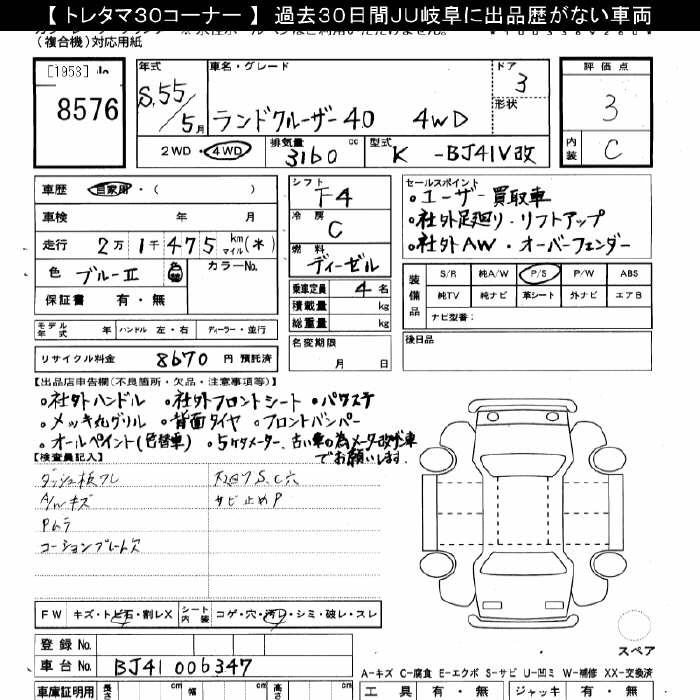 【 トレタマ30コーナー 】 過去30日間JU岐阜に出品歴がない車両
(複合機)対応用紙
[1953]
8576
年式
S.55/5月
車名・グレード
ランドクルーザー40 4WD
ドア
3
形状
評価点
3
内装
C
2WD・4WD
排気量
3160 cc
型式
K -BJ41V改
車歴 自家用・( )
車検 年 月
走行 2万1千475 km マイル(*)
色 ブルーII 色替
カラーNo.
保証書 有・無
シフト
F4
冷房
C
燃料
ディーゼル
乗車定員 4 名
積載量 kg
総重量 kg
セールスポイント
。ユーザー買取車
。社外足廻り・リフトアップ
。社外AW・オーバーフェンダー
装備品
S/R 純A/W P/S P/W ABS
純TV 純ナビ 革シート 外ナビ エアB
ナビ型番:
モデル年式 年 ハンドル 左・右 ディーラー・並行
名変期限
月 日
後日品
リサイクル料金 8670 円 預託済
【出品店申告欄(不良箇所・欠品・注意事項等)】
。社外ハンドル 。社外フロントシート 。パワステ
。メッキ丸グリル 。背面タイヤ 。フロントバンパー
。オールペイント(色替車) 。5ケタメーター、古い車の為メータ改ざん車
でお願いします.
【検査員記入】
ダッシュ板ワレ
A/Wキズ サビ止めP
Pムラ
コーションプレート欠
FW キズ・トビ石・割レX シート内装 コゲ・穴・汚レ・シミ・破レ・スレ
スペア
登録 No.
車台 No. BJ41 006347
A-キズ C-腐食 E-エクボ S-サビ U-凹ミ W-補修 XX-交換済
車庫証明用 長さ cm 幅 cm 高さ cm
工具 有・無 ジャッキ 有・無